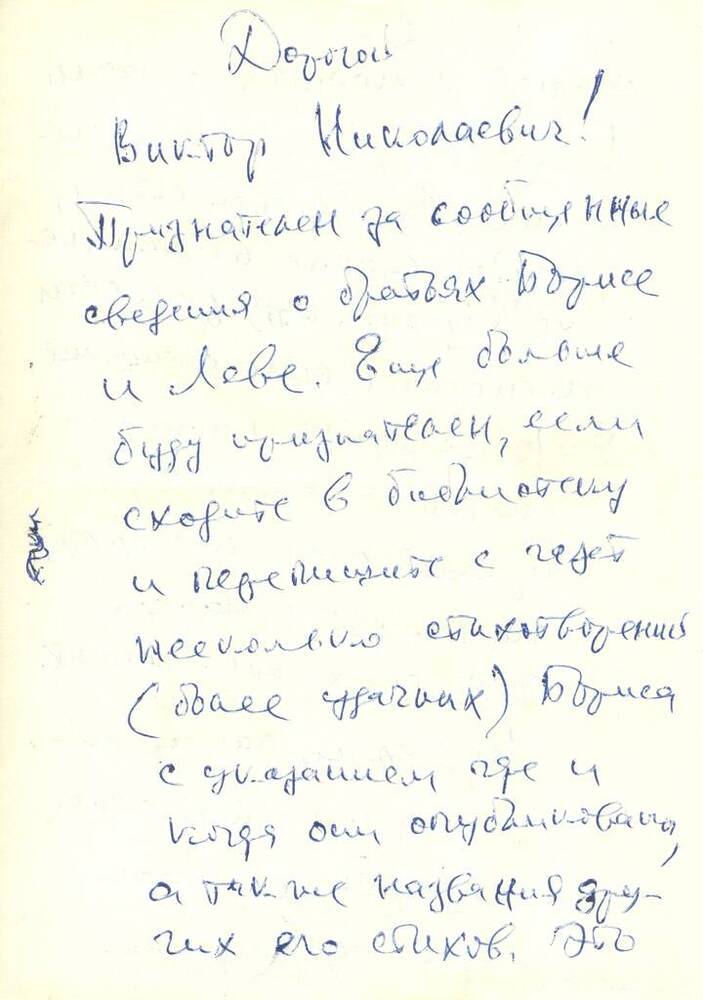 Дорогой
Виктор Николаевич!
Признателен за сообщенные
сведения о братьях Борисе
и Леве. Еще больше
буду признателен, если
сходите в библиотеку
и перепишите с газет
несколько стихотворений
(более удачных) Бориса
с указанием где и
когда они опубликованы,
а также названия дру-
гих его стихов. Это